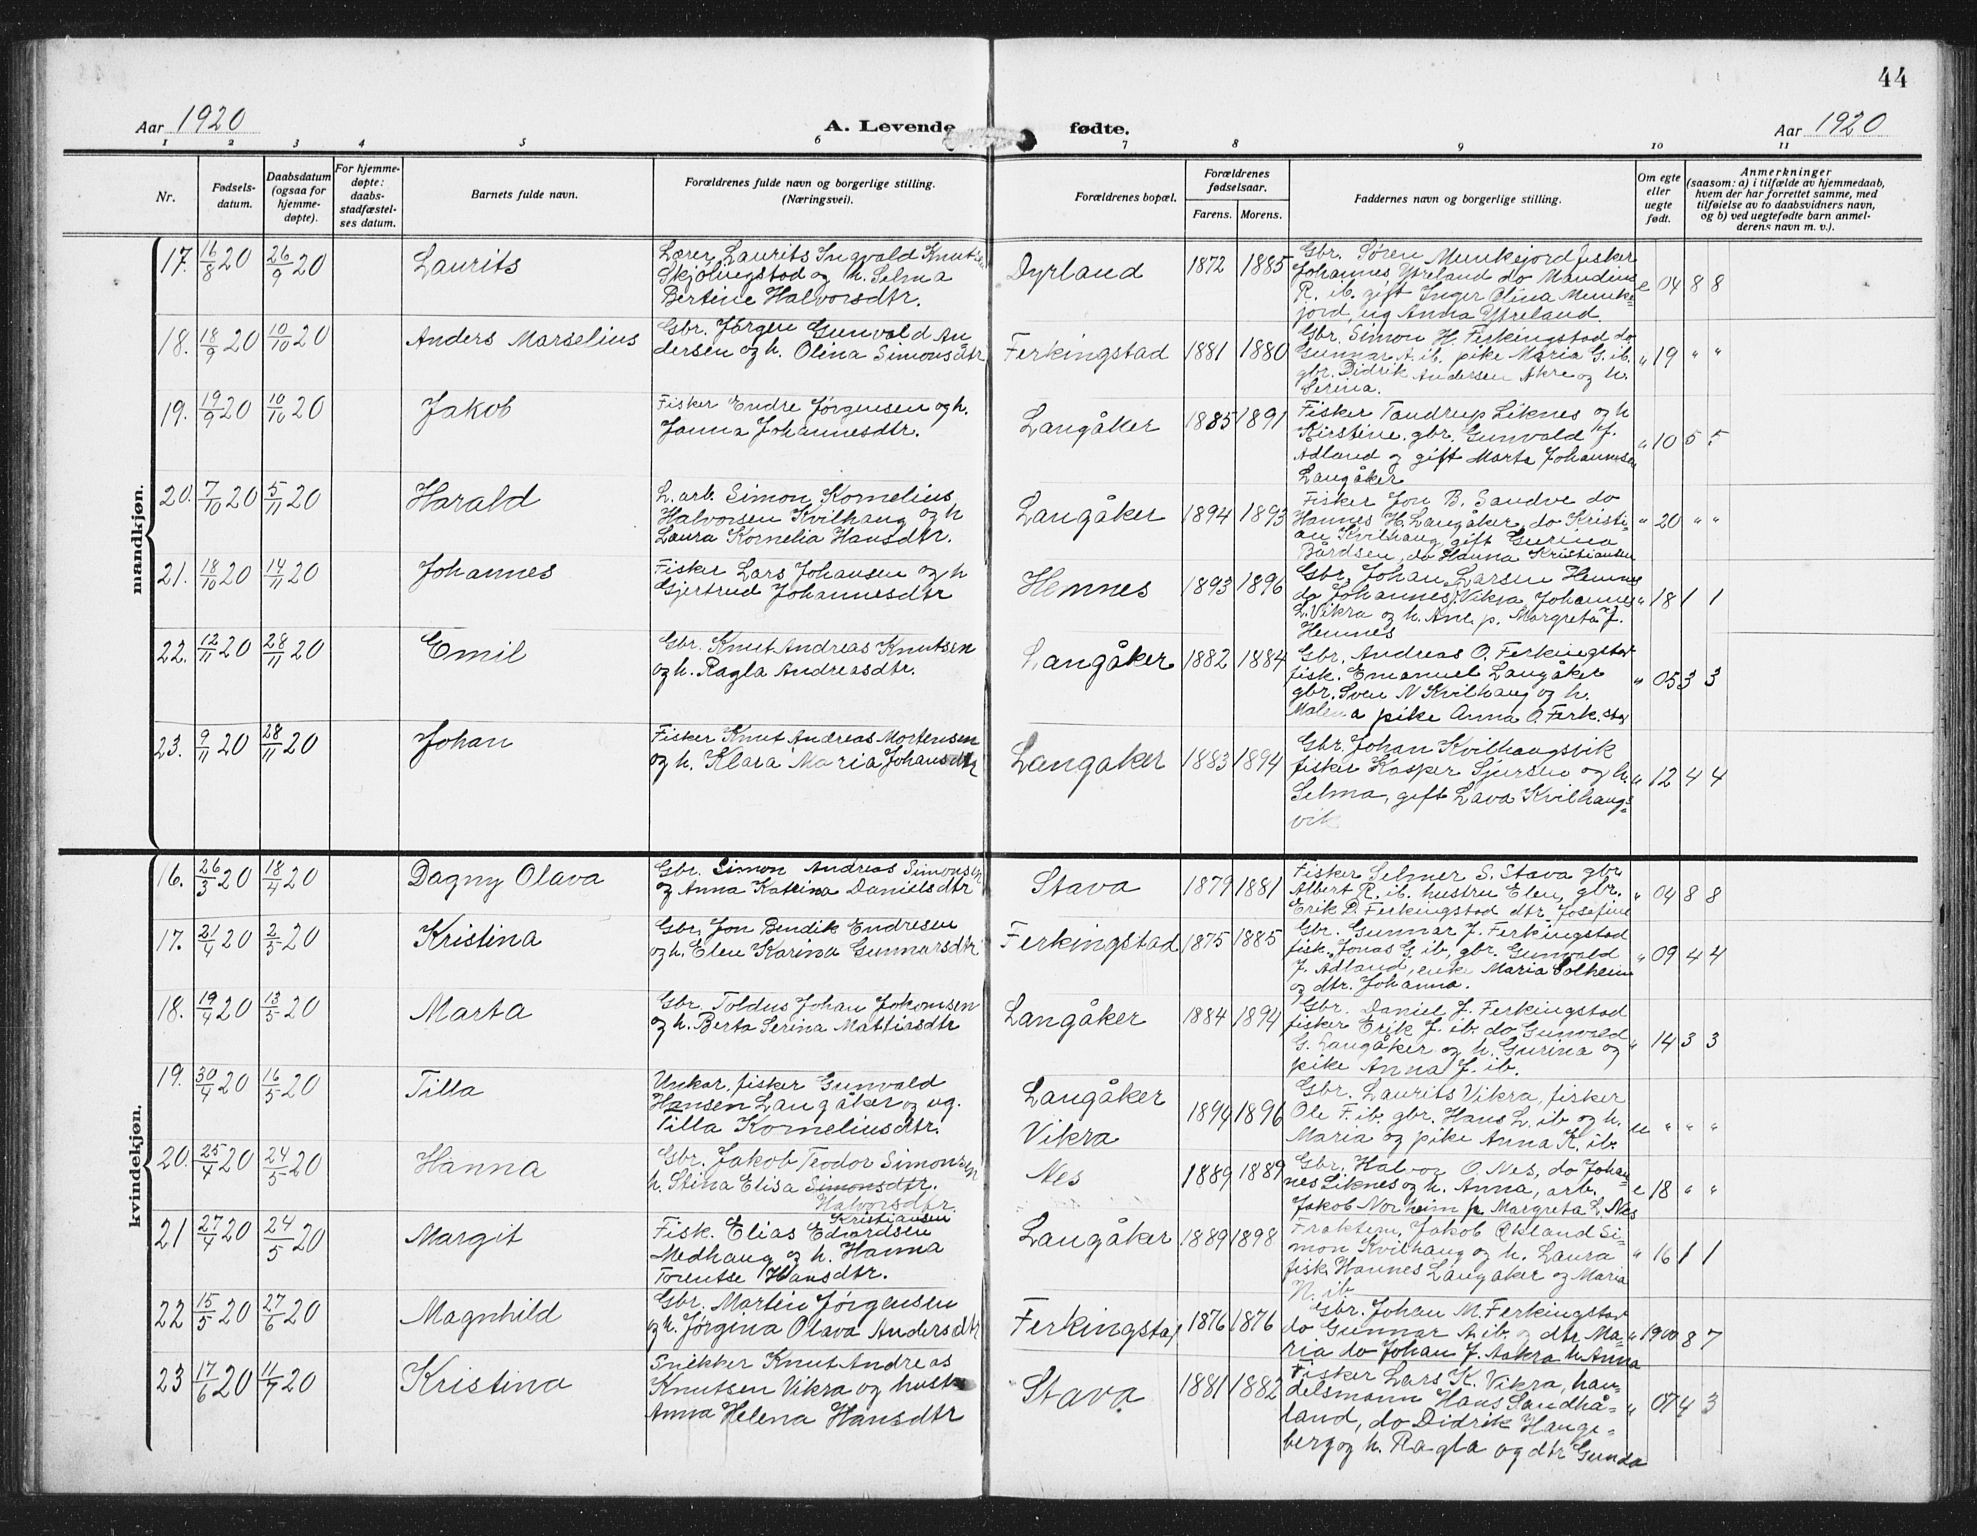 44
Aar 1920
A. Levende fødte.
Aar 1920
1 2 3 4 5 6 7 8 9 10 11
Nr.
Fødsels-
datum.
Daabsdatum
(ogsaa for
hjemme-
døpte).
For hjemme-
døpte:
daabs-
stadfæstel-
ses datum.
Barnets fulde navn.
Forældrenes fulde navn og borgerlige stilling.
(Næringsvei).
Forældrenes bopæl.
Forældrenes
fødselsaar.
Farens. Morens.
Faddernes navn og borgerlige stilling.
Om egte
eller
uegte
født.
Anmerkninger
(saasom: a) i tilfælde av hjemmedaab,
hvem der har forrettet samme, med
tilføielse av to daabsvidners navn,
og b) ved uegtefødte barn anmel-
derens navn m. v.).
mandkjøn.
17. 16/8 20 26/9 20 Laurits
Lærer Laurits Ingvald Knutsen
Skjølingstad og h. Selma
Bertine Halvorsdtr.
Dyrland 1872 1885
Gbr. Søren Munkejord fisker
Johannes Ytreland do Mandine
R. ib. gift Inger Olina Munke-
jord, ug Anna Ytreland.
e 04 8 8
18. 18/9 20 10/10 20 Anders Marselius
Gbr. Jørgen Gunvald An-
dersen og h. Olina Simonsdtr
Ferkingstad 1881 1880
Gbr. Simon H. Ferkingstad do
Gunnar A. ib. pike Maria G. ib.
gbr. Didrik Andersen Akre og h.
Serina.
" 19 " "
19. 19/9 20 10/10 20 Jakob
Fisker Endre Jørgensen og h.
Janna Johannesdtr.
Langåker 1885 1891
Fisker Tandrup Liknes og h
Kirstine. gbr. Gunvald J.
Adland og gift Marta Johannsen
Langåker
" 10 5 5
20. 7/10 20 5/11 20 Harald
L. arb. Simon Kornelius
Halvorsen Kvilhaug og h
Laura Kornelia Hansdtr.
Langåker 1894 1893
Fisker Jon B. Sandve do
Hannes H. Langåker, do Kristi-
an Kvilhaug, gift Gurina
Bårdsen, do Hanna Kristiansen
" 20 " "
21. 18/10 20 14/11 20 Johannes
Fisker Lars Johansen og h
Gjertrud Johannesdtr
Hemnes 1893 1896
Gbr. Johan Larsen Hemnes
do Johannes J. Vikra Johannes
L. Vikra og h. Ane, p. Margreta J.
Hemnes
" 18 1 1
22. 12/11 20 28/11 20 Emil
Gbr. Knut Andreas Knutsen
og h. Ragla Andreasdtr.
Langåker 1882 1884
Gbr. Andreas O. Ferkingstad
fisk. Emanuel Langåker
gbr. Sven N Kvilhaug og h.
Malena pike Anna O. Ferk.stad
" 05 3 3
23. 9/11 20 28/11 20 Johan
Fisker Knut Andreas Mortensen
og h. Klara Maria Johansdtr
Langaker 1883 1894
Gbr. Johan Kvilhaugsvik
fisker Kasper Sjursen og h.
Selma, gift Lava Kvilhaugs-
vik
" 12 4 4
kvindekjøn.
16. 26/3 20 18/4 20 Dagny Olava
Gbr. Simon Andreas Simonsen
og Anna Katrina Danielsdtr
Stava 1879 1881
Fisker Selmer S. Stava gbr
Albert R. ib. hustru Elen, gbr.
Erik D. Ferkingstad dtr Josefine
" 04 8 8
17. 21/4 20 2/5 20 Kristina
Gbr. Jon Bendik Endresen
og h. Elen Karina Gunnarsdtr
Ferkingstad 1875 1885
Gbr. Gunnar J. Ferkingstad
fisk. Jonas G. ib, gbr. Gunvald
J. Adland, enke Maria Solheim
og dtr. Johanna.
" 09 4 4
18. 19/4 20 13/5 20 Marta
Gbr. Toldus Johan Johansen
og h. Berta Serina Mattiasdtr
Langåker 1884 1894
Gbr. Daniel J. Ferkingstad
fisker Erik J. ib. do Gunvald
G. Langåker og h. Gurina og
pike Anna J. ib.
" 14 3 3
19. 30/4 20 16/5 20 Tilla
Unkar, fisker Gunvald
Hansen Langåker og ug.
Tilla Korneliusdtr.
Langåker
Vikra
1894 1896
Gbr. Laurits Vikra, fisker
Ole F. ib. gbr. Hans L. ib og h.
Maria og pike Anna K. ib.
u " " "
20. 25/4 20 24/5 20 Hanna
Gbr. Jakob Teodor Simonsen
h. Stina Elisa Simonsdtr.
Halvorsdtr.
Nes 1889 1889
Gbr. Halvor O. Nes, do Johan-
nes Liknes og h. Anna, arb.
Jakob Norheim p. Margreta L. Nes
e 18 " "
21 27/4 20 24/5 20 Margit
Kristiansen
Fisk. Elias Edvardsen
Medhaug og h. Hanna
Torentse Hansdtr.
Langåker 1889 1898
Fraktem. Jakob Økland Si-
mon Kvilhaug og h. Laura
fisk Hannes Langåker og Maria
N. ib
" 16 1 1
22 15/5 20 27/6 20 Magnhild
Gbr. Martin Jørgensen
og h. Jørgina Olava Andersdtr
Ferkingstad 1876 1876
Gbr. Johan M. Ferkingstad
do Gunnar A. ib. og dtr Ma-
ria do Johan J. Aakra h Anna
" 1900 8 7
23 17/6 20 11/7 20 Kristina
Snikker Knut Andreas
Knutsen Vikra og hust
Anna Helena Hansdtr
Stava 1881 1882
Fisker Lars K. Vikra, han-
delsmann Hans Sandhå-
land, do Didrik Hauge-
berg og h. Ragla og dtr Gunda
" 07 4 3